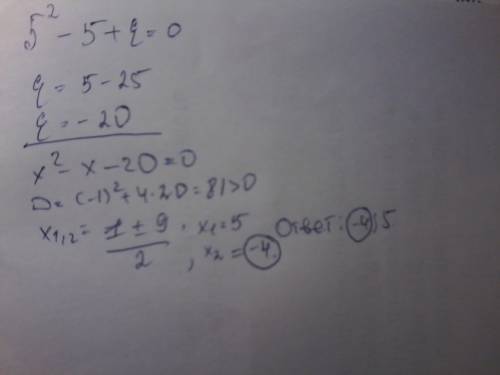 5² - 5 + q = 0
q = 5 - 25
q = -20
x² - x - 20 = 0
D = (-1)² + 4·20 = 81 > 0
x₁,₂ = (1 ± 9)/2, x₁ = 5 Ответ: -4; 5
, x₂ = -4.